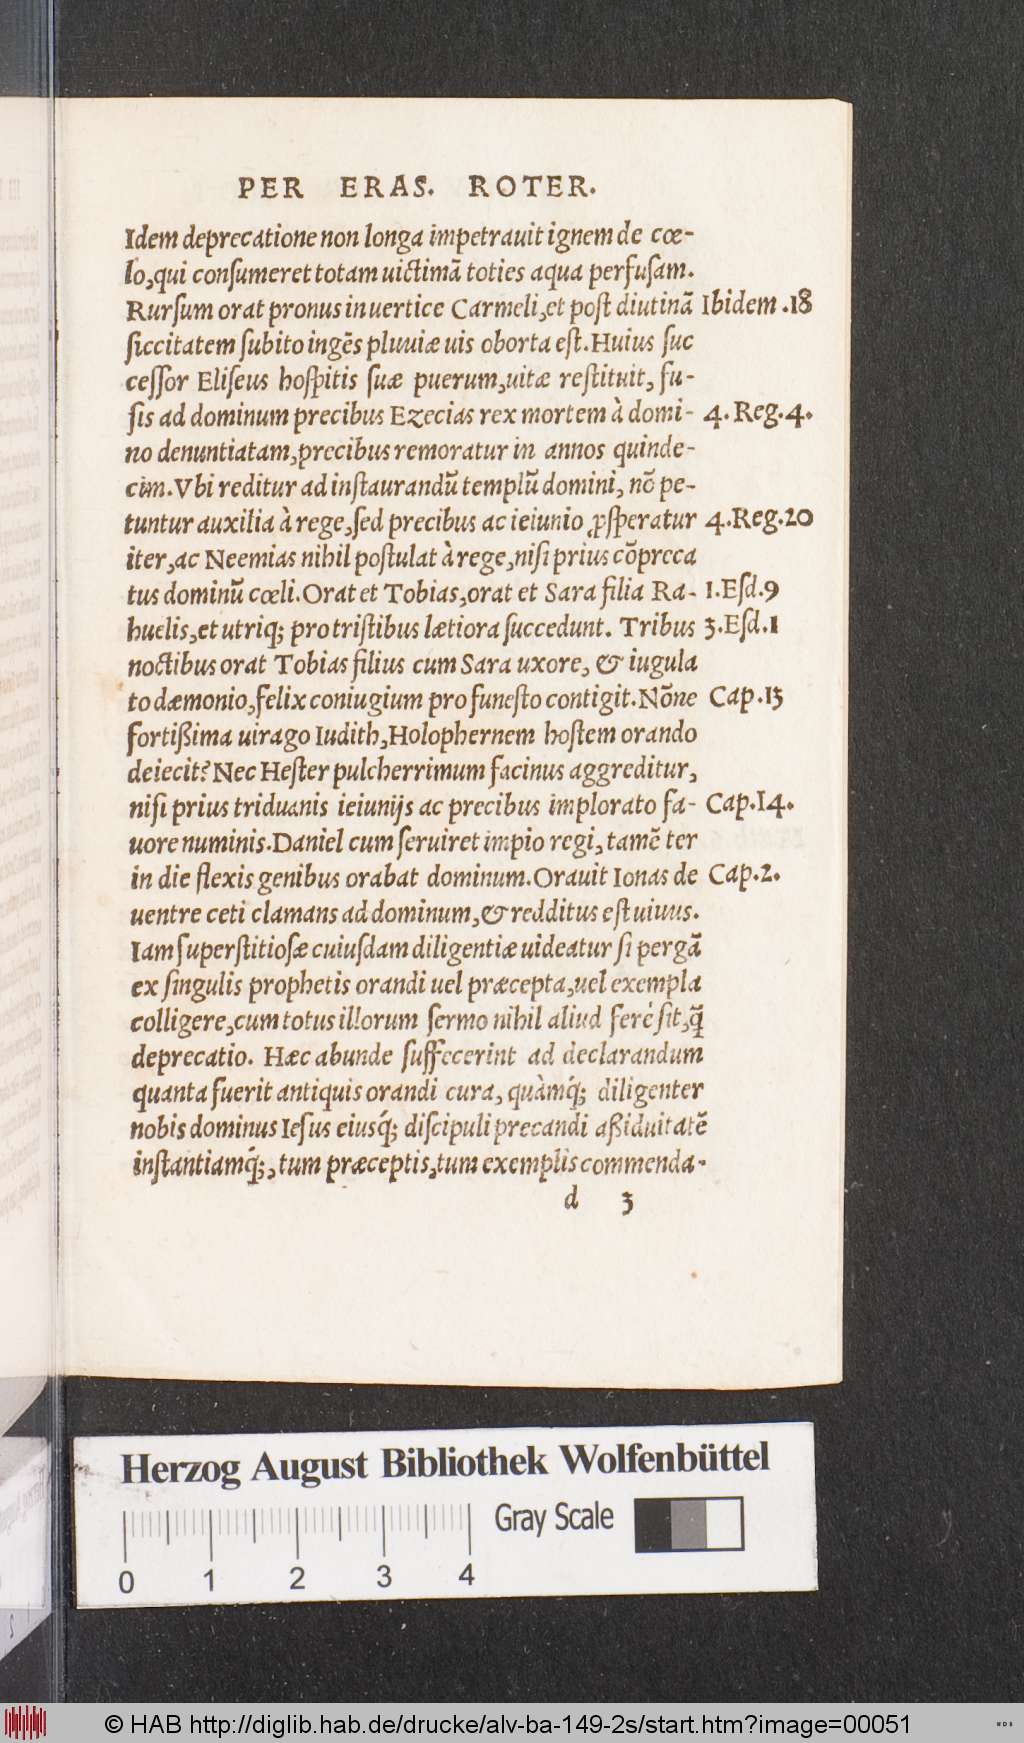 PER ERAS. ROTER.
Idem deprecatione non longa impetrauit ignem de cœ-
lo, qui consumeret totam uictimã toties aqua perfusam.
Rursum orat pronus in uertice Carmeli, et post diutinã Ibidem .18
siccitatem subito ingẽs pluuiæ uis oborta est. Huius suc
cessor Eliseus hospitis suæ puerum, uitæ restituit, fu-
sis ad dominum precibus Ezecias rex mortem à domi- 4. Reg. 4.
no denuntiatam, precibus remoratur in annos quinde-
cim. Vbi reditur ad instaurandũ templũ domini, nõ pe-
tuntur auxilia à rege, sed precibus ac ieiunio ꝓsperatur 4. Reg. 20
iter, ac Neemias nihil postulat à rege, nisi prius cõpreca
tus dominũ cœli. Orat et Tobias, orat et Sara filia Ra- 1. Esd. 9
huelis, et utriq; pro tristibus lætiora succedunt. Tribus 3. Esd. 1
noctibus orat Tobias filius cum Sara uxore, & iugula
to dæmonio, felix coniugium pro funesto contigit. Nõne Cap. 13
fortißima uirago Iudith, Holophernem hostem orando
deiecit? Nec Hester pulcherrimum facinus aggreditur,
nisi prius triduanis ieiunijs ac precibus implorato fa- Cap. 14.
uore numinis. Daniel cum seruiret impio regi, tamẽ ter
in die flexis genibus orabat dominum. Orauit Ionas de Cap. 2.
uentre ceti clamans ad dominum, & redditus est uiuus.
Iam superstitiosæ cuiusdam diligentiæ uideatur si pergã
ex singulis prophetis orandi uel præcepta, uel exempla
colligere, cum totus illorum sermo nihil aliud ferè sit, q̃
deprecatio. Hæc abunde suffecerint ad declarandum
quanta fuerit antiquis orandi cura, quàmq́; diligenter
nobis dominus Iesus eiusq́; discipuli precandi aßiduitatẽ
instantiamq́;, tum præceptis, tum exemplis commenda-
d 3
Herzog August Bibliothek Wolfenbüttel
Gray Scale
0 1 2 3 4
© HAB http://diglib.hab.de/drucke/alv-ba-149-2s/start.htm?image=00051